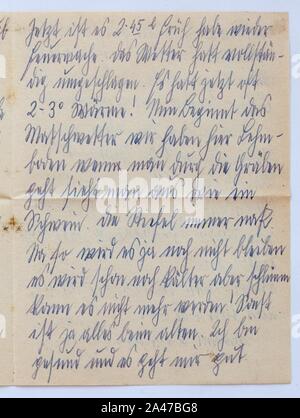 Jetzt ist es 2.45 h früh habe wieder
Feuerwache das Wetter hatt vollstän-
dig umgeschlagen. Es hatt jetzt oft
2-3° Wärme! Nun beginnt das
Matschwetter wir haben hier Lehm-
boden wenn man durch die Gräben
geht sieht man aus wie ein
Schwein. die Stiefel immer naß.
Na so wird es ja noch nicht bleiben
es wird schon noch kälter aber schlimm
kann es nicht mehr werden! Sonst
ist ja alles beim alten. Ich bin
gesund und es geht mir gut
alamy
alamy
Image ID: 2A47BG8
www.alamy.com